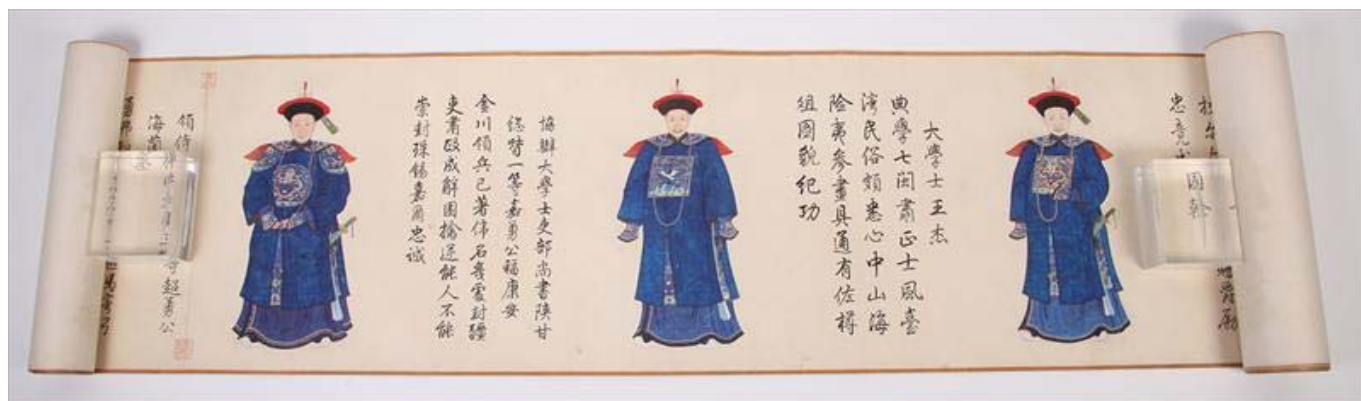 忠竟成國幹
大學士王杰
典學七閩肅正士風臺
灣民俗頗悉心中山海
險夷參畫具通有佐樽
俎圖貌紀功
協辦大學士吏部尚書陝甘
總督一等嘉勇公福康安
金川領兵已著偉名幾處封疆
吏肅政成解圍擒逆能人不能
崇封殊錫嘉爾忠誠
領侍 超勇公
海蘭察